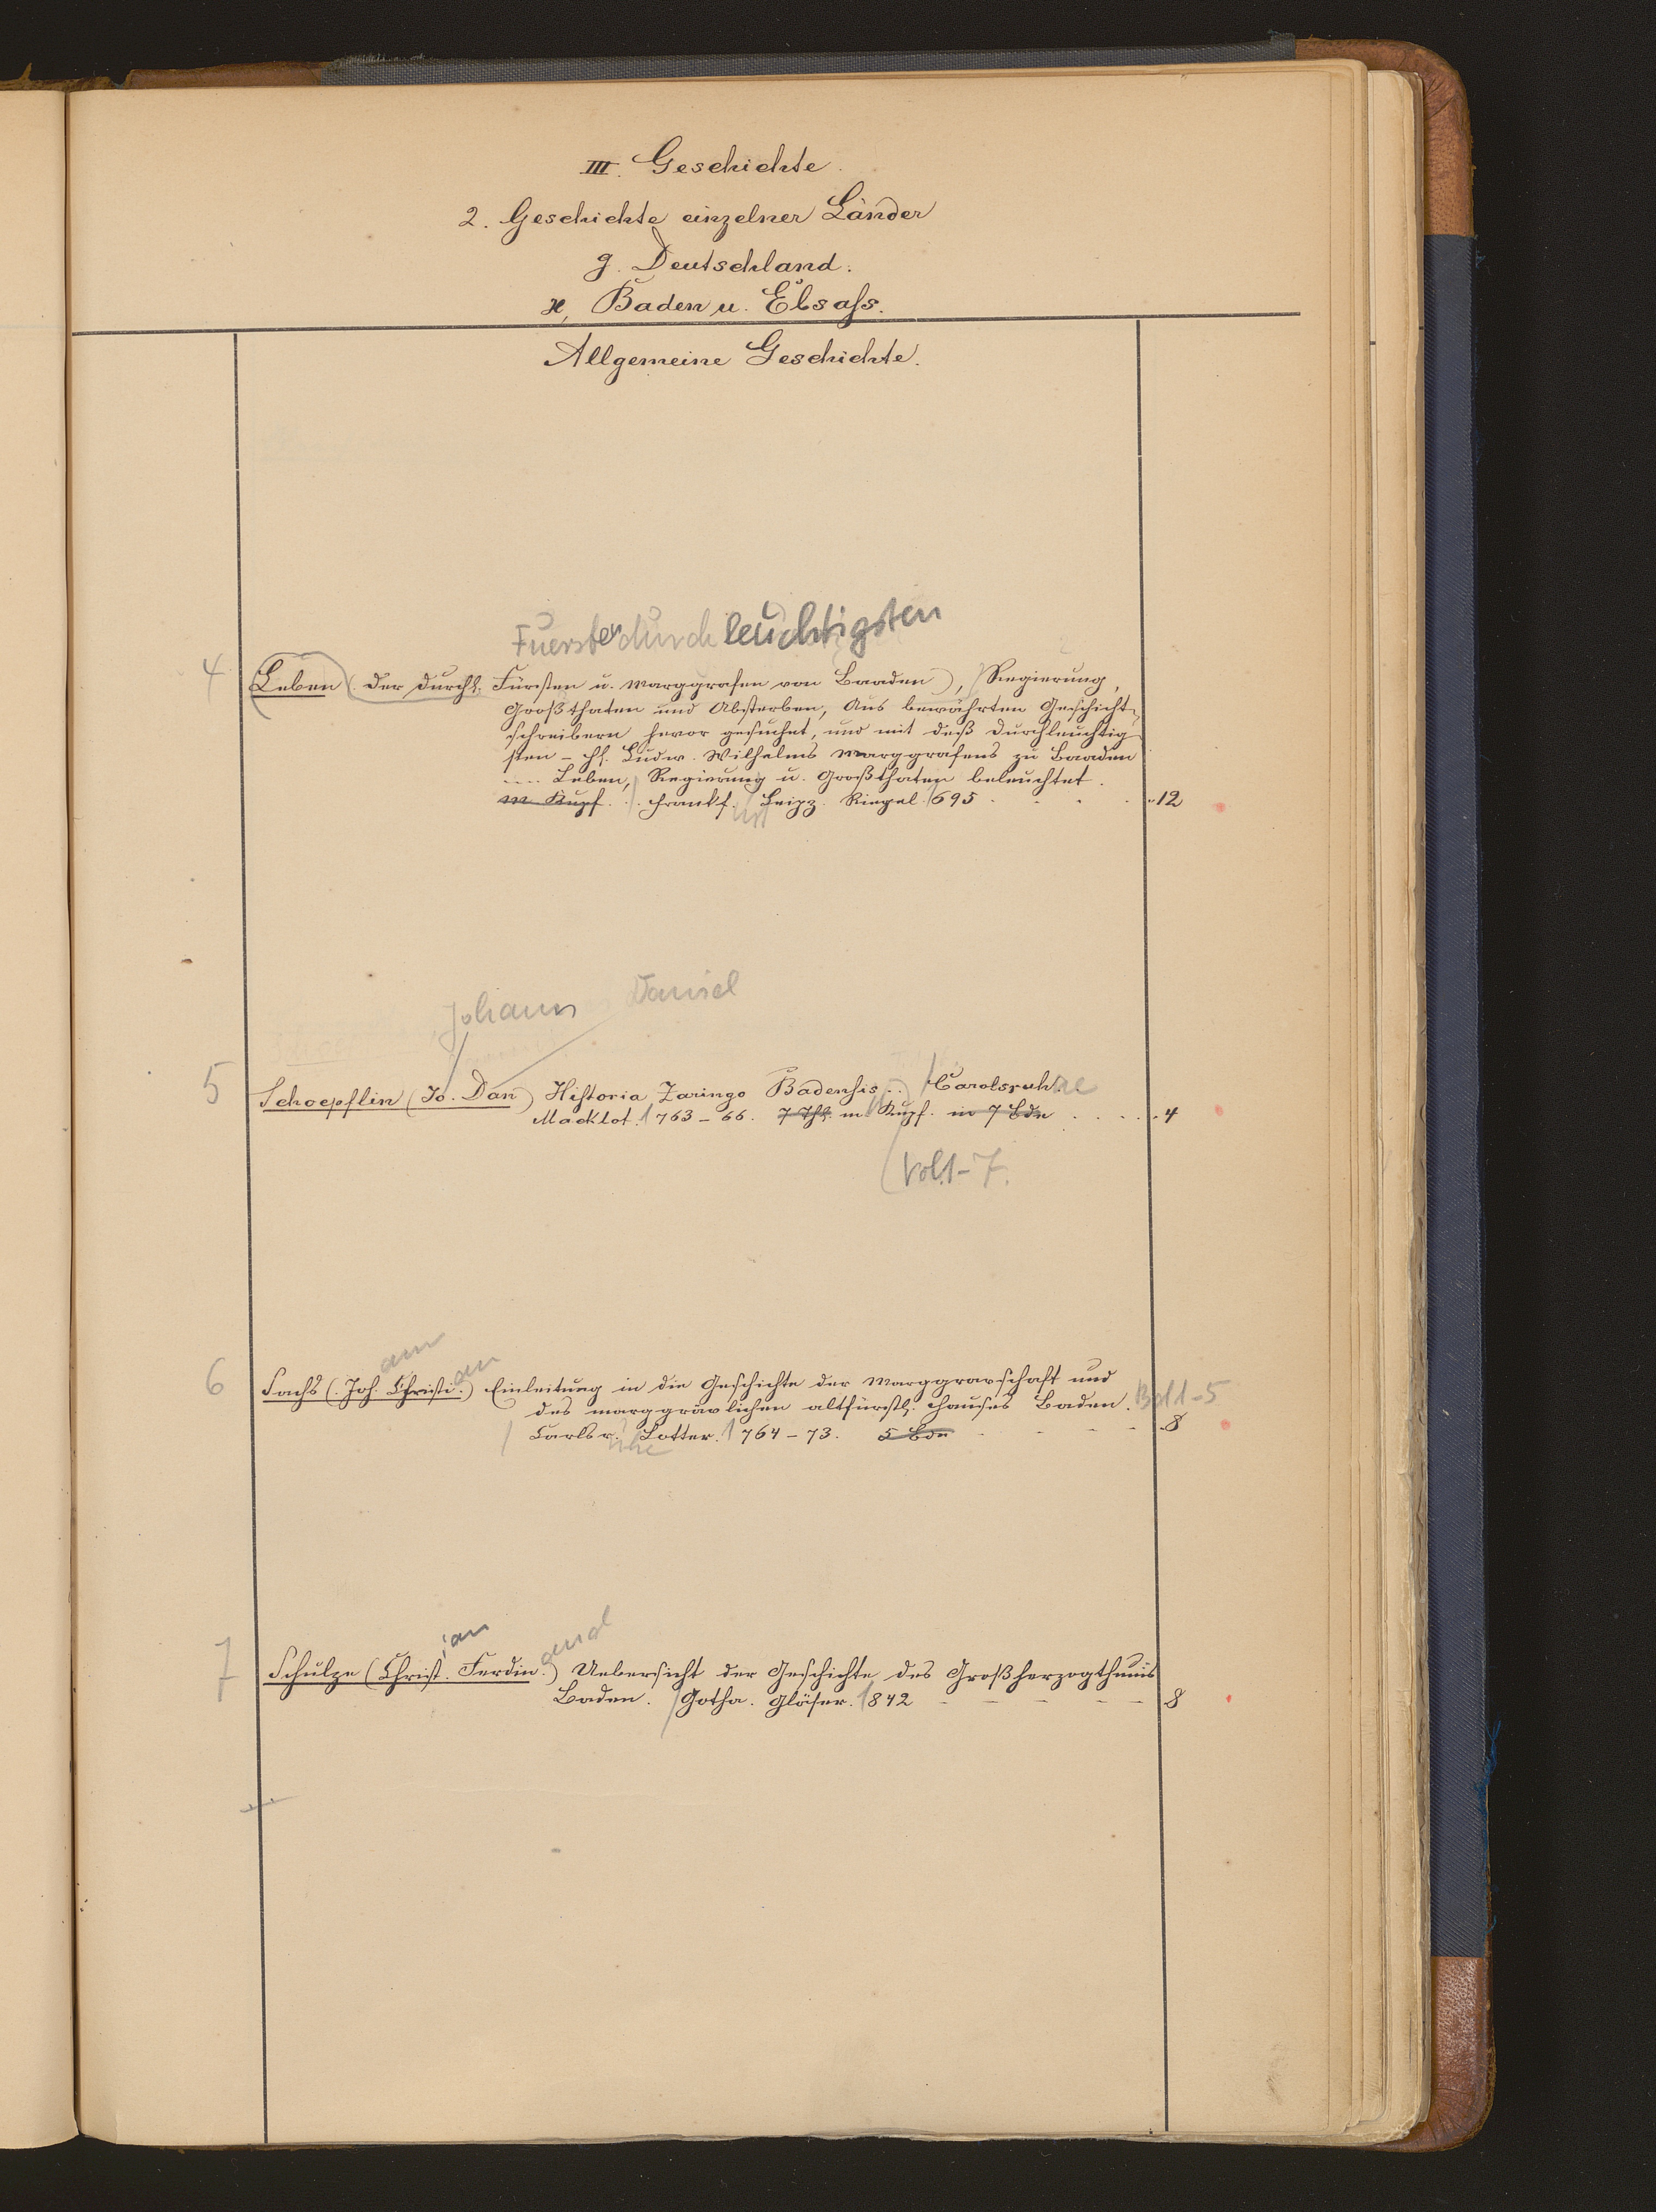 III. Geschichte.
2. Geschichte einzelner Länder
g. Deutschland.
ϰ, Baden u. Elsaß.
Allgemeine Geschichte.
Fuersten durchleuchtigsten
4 Leben (der Durchl. Fürsten u. Marggrafen von Baaden), Regierung,
Großthaten und Absterben, Aus bewährten Geschicht-
schreibern hervor gesuchet, und mit deß Durchleuchtig-
sten – H. Ludw. Wilhelms Marggrafens zu Baaden
.... Leben, Regierung u. Großthaten beleuchtet.
m. Kupf. . Frankf. Leipz. Riegel. 1695 12
Johann Daniel
5 Schoepflin (Jo. Dan) Historia Zaringo Badensis .. Carolsruhae
Macklot. 1763–66. 7 Thl. m Kupf. in 7 Bdn 4
Vol. 1–7.
ann ian
6 Sachs (Joh. Christi.) Einleitung in die Geschichte der Marggravschaft und
des marggrävlichen altfürstl. Hauses Baden. Bd 1–5
Carlsr. Lotter. 1764–73. 5 Bde 8
uhe
ian and
7 Schulze (Christ. Ferdin.) Uebersicht der Geschichte des Großherzogthums
Baden. Gotha. Gläser. 1842 8